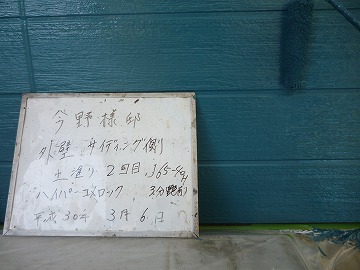 今野様邸
外壁 サイディング側
上塗り 2回目
ハイパーユメロック 3分艶有
平成30年 3月6日